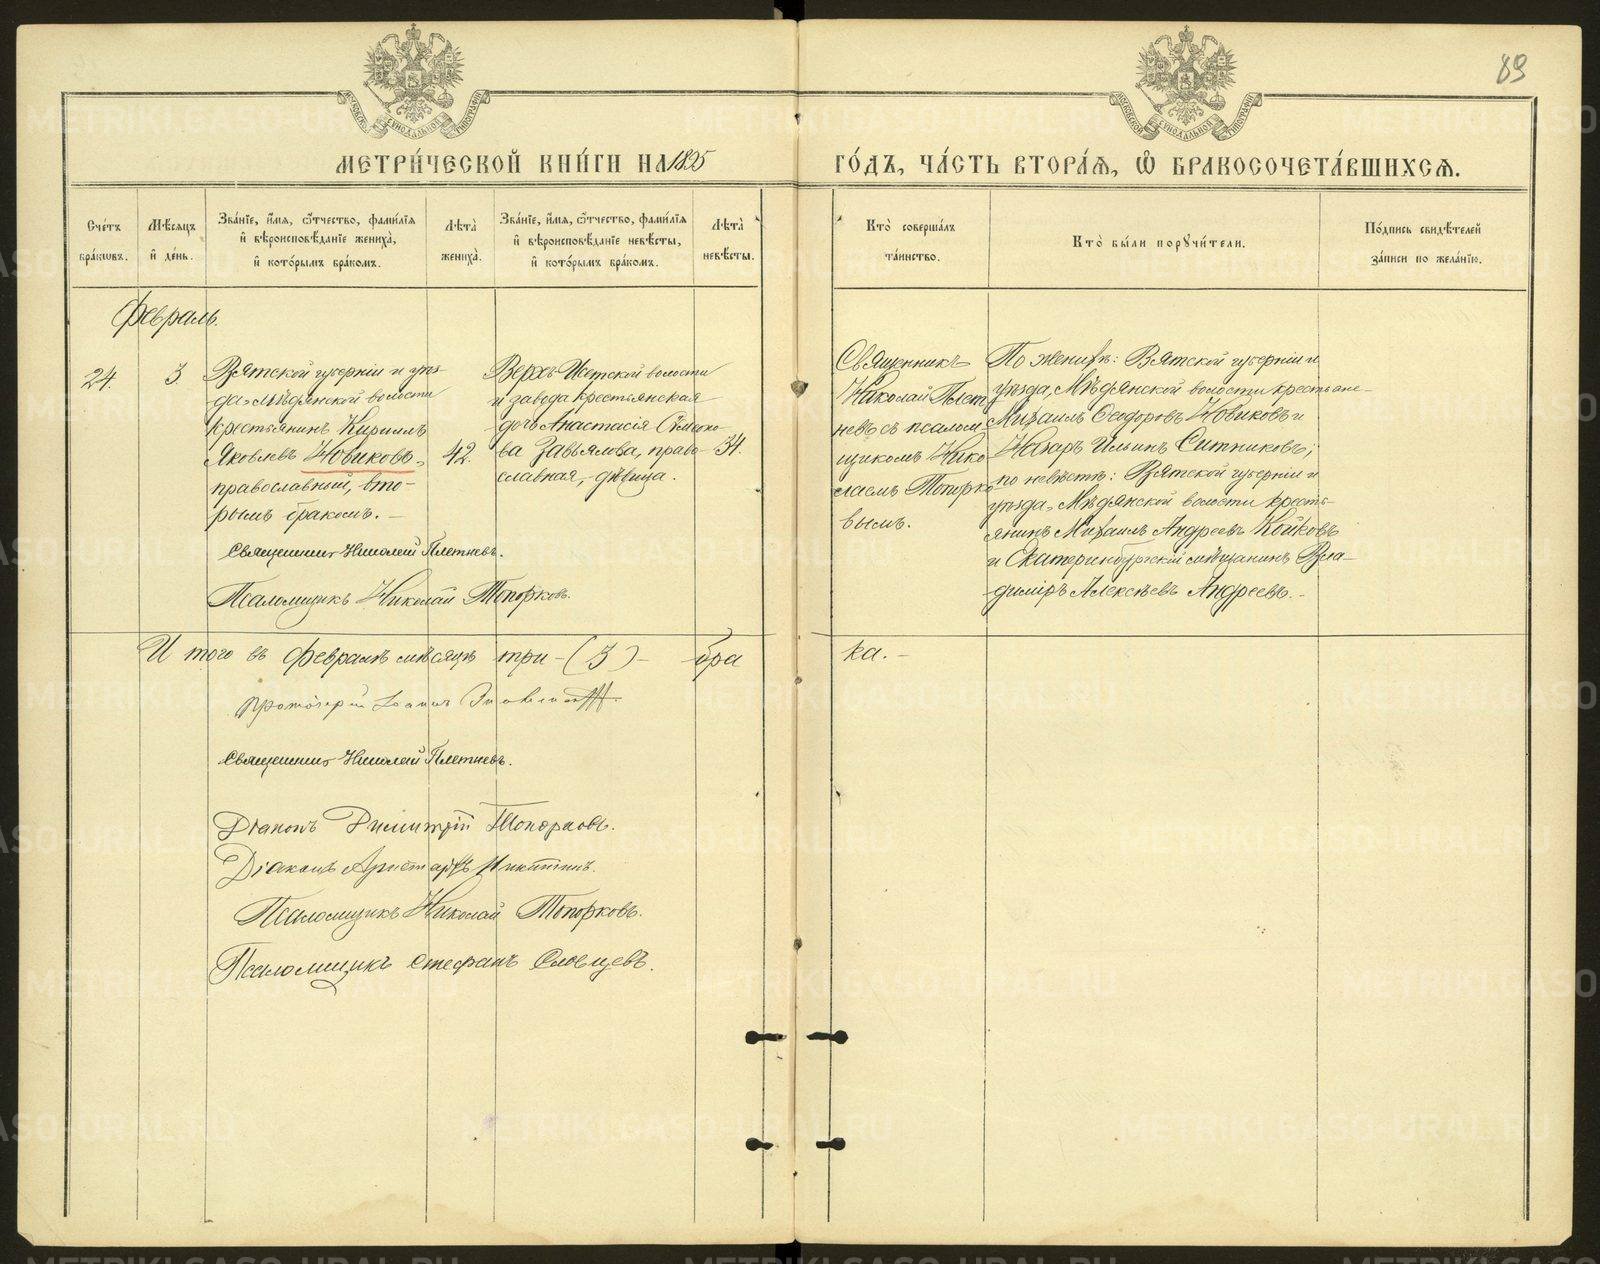 89
МОСКОВСКОЙ СѴНОДАЛЬНОЙ ТИПОГРАФІИ
МОСКОВСКОЙ СѴНОДАЛЬНОЙ ТИПОГРАФІИ
МЕТРИ́ЧЕСКОЙ КНИ́ГИ НА 1895
ГО́ДЪ, ЧА́СТЬ ВТОРА́Я, Ѡ҆ БРАКОСОЧЕТА́ВШИХСЯ.
Сче́тъ
бра́кѡвъ.
Мѣ́сяцъ
и҆ де́нь.
Зва́нїе, и҆́мя, ѻ҆́тчество, фами́лїя
и҆ вѣроисповѣ́данїе жениха̀,
и҆ кото́рымъ бра́комъ.
Лѣта̀
жениха̀.
Зва́нїе, и҆́мя, ѻ҆́тчество, фами́лїя
и҆ вѣроисповѣ́данїе невѣ́сты,
и҆ кото́рымъ бра́комъ.
Лѣта̀
невѣ́сты.
Кто̀ соверша́лъ
та́инство.
Кто̀ бы́ли порꙋчи́тели.
По́дпись свидѣ́телей
за́писи по жела́нїю.
Февраль.
24.
3.
Вятской губерніи и уѣз-
да, Мѣдянской волости
крестьянинъ Кириллъ
Яковлевъ Новиковъ,
православный, вто-
рымъ бракомъ. —
42.
Верхъ-Исетской волости
и завода крестьянская
дочь Анастасія Сѵмеоно-
ва Завьялова, право-
славная, дѣвица.
34.
Священникъ
Николай Плет-
невъ съ псалом-
щикомъ Нико-
лаемъ Топорко-
вымъ.
По женихѣ: Вятской губерніи и
уѣзда, Мѣдянской волости крестьяне
Михаилъ Ѳеодоровъ Новиковъ и
Назаръ Ильинъ Ситниковъ;
по невѣстѣ: Вятской губерніи и
уѣзда, Мѣдянской волости кресть-
янинъ Михаилъ Андреевъ Койковъ
и Екатеринбургскій мѣщанинъ Вла-
диміръ Алексѣевъ Андреевъ. —
Священникъ Николай Плетневъ.
Псаломщикъ Николай Топорковъ.
Итого въ Февралѣ мѣсяцѣ три — (3) — бра
ка. —
Протоіерей Іоаннъ
Священникъ Николай Плетневъ.
Діаконъ Димитрій Топорковъ.
Діаконъ Аристархъ Никитинъ.
Псаломщикъ Николай Топорковъ.
Псаломщикъ Стефанъ Словцевъ.
METRIKI.GASO-URAL.RU